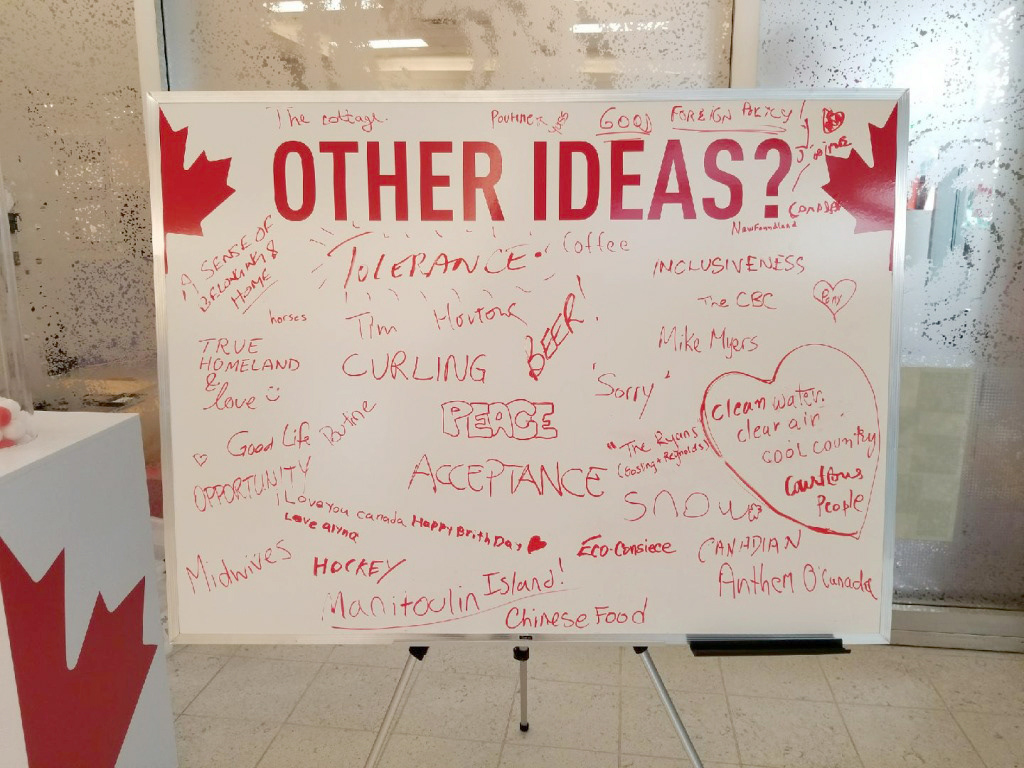 The cottage.
Poutine
GOOD FOREIGN POLICY!
OTHER IDEAS?
Newfoundland
A SENSE OF
BELONGING &
HOME
TOLERANCE
Coffee
INCLUSIVENESS
The CBC
horses
Tim Hortons
BEER!
Mike Myers
TRUE
HOMELAND
&
love
CURLING
'Sorry'
clean water.
clear air
cool country
People
PEACE
Good Life
"The Ryans
(Gosling + Reynolds)
ACCEPTANCE
OPPORTUNITY
SNOW
I Love you canada Happy BrithDay
Love alyna
Eco-Consiece
CANADIAN
Anthem O'Canada
Midwives
HOCKEY
Manitoulin Island!
Chinese Food